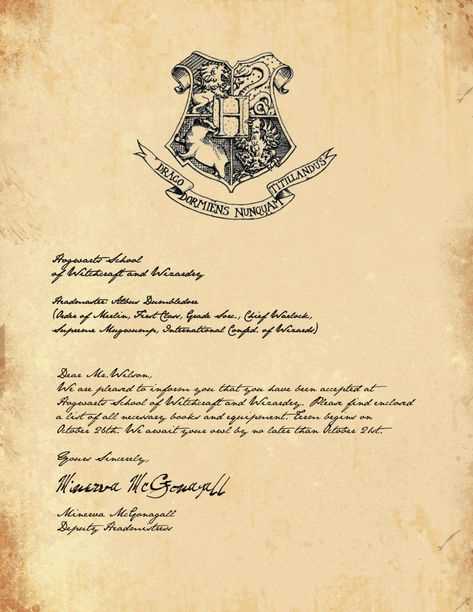 H
DRACO
DORMIENS NUNQUAM
TITILLANDUS
Hogwarts School
of Witchcraft and Wizardry
Headmaster Albus Dumbledore
(Order of Merlin, First Class, Grade Sorc., Chief Warlock,
Supreme Mugwump, International Confed. of Wizards)
Dear Mr. Wilson,
We are pleased to inform you that you have been accepted at
Hogwarts School of Witchcraft and Wizardry. Please find enclosed
a list of all necessary books and equipment. Term begins on
October 26th. We await your owl by no later than October 21st.
Yours Sincerely,
Minerva McGonagall
Minerva McGonagall
Deputy Headmistress